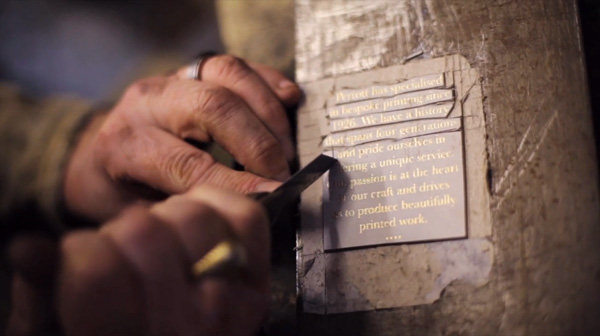 Perrott has specialised
in bespoke printing since
1926. We have a history
that spans four generations
and pride ourselves in
ering a unique service
passion is at the heart
our craft and drives
s to produce beautifully
printed work.
....